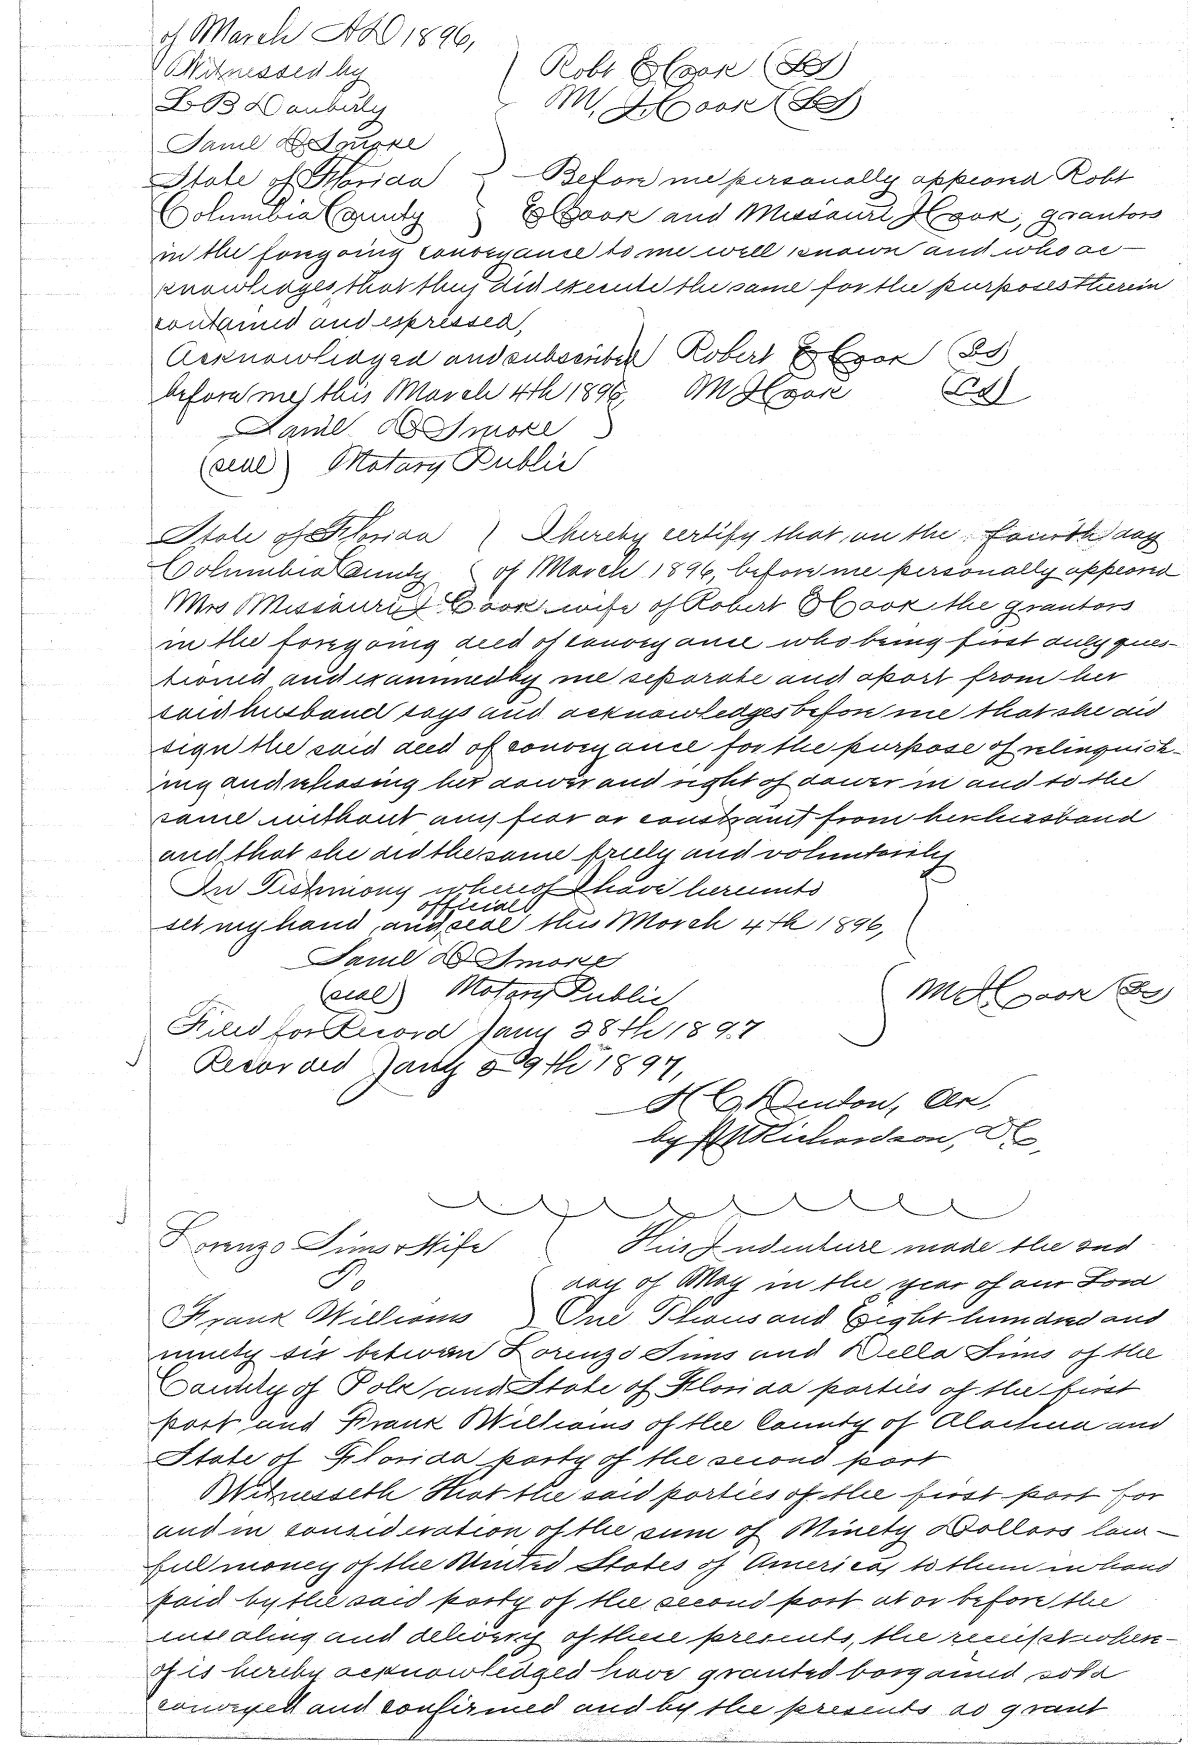 of March AD 1896,
Witnessed by } Robt E Cook (LS)
L B Dauberly M. J. Cook (LS)
Saml D Smoke
State of Florida } Before me personally appeard Robt
Columbia County } E Cook and Missouri J Cook, grantors
in the foregoing conveyance to me well known and who ac-
knowledges, that they did execute the same for the purposes therein
contained and expressed,
Acknowledged and subscribed } Robert E Cook (LS)
before me this March 4th 1896, M J Cook (LS)
Saml D Smoke
(seal) Notary Public
State of Florida } I hereby certify that on the fourth day
Columbia County } of March 1896, before me personally appeard
Mrs Missouri J Cook wife of Robert E Cook the grantors
in the foregoing deed of conveyance who being first duly ques-
tioned and examined by me separate and apart from her
said husband says and acknowledges before me that she did
sign the said deed of conveyance for the purpose of relinquish-
ing and releasing her dower and right of dower in and to the
same without any fear or constraint from her husband
and that she did the same freely and voluntarily
In Testimony whereof I have hereunto
set my hand and official seal this March 4th 1896,
Saml D Smoke
(seal) Notary Public } M J Cook (LS)
Filed for Record Jany 28th 1897
Recorded Jany 29th 1897,
H C Denton, Clk,
by Richardson, D C,
Lorenzo Sims & Wife } This Indenture made the 2nd
To day of May in the year of our Lord
Frank Williams } One Thousand Eight hundred and
ninety six between Lorenzo Sims and Della Sims of the
County of Polk and State of Florida parties of the first
part and Frank Williams of the County of Alachua and
State of Florida party of the second part
Witnesseth that the said parties of the first part for
and in consideration of the sum of Ninety Dollars law-
ful money of the United States of America, to them in hand
paid by the said party of the second part at or before the
ensealing and delivery of these presents, the receipt where-
of is hereby acknowledged have granted bargained sold
conveyed and confirmed and by the presents do grant